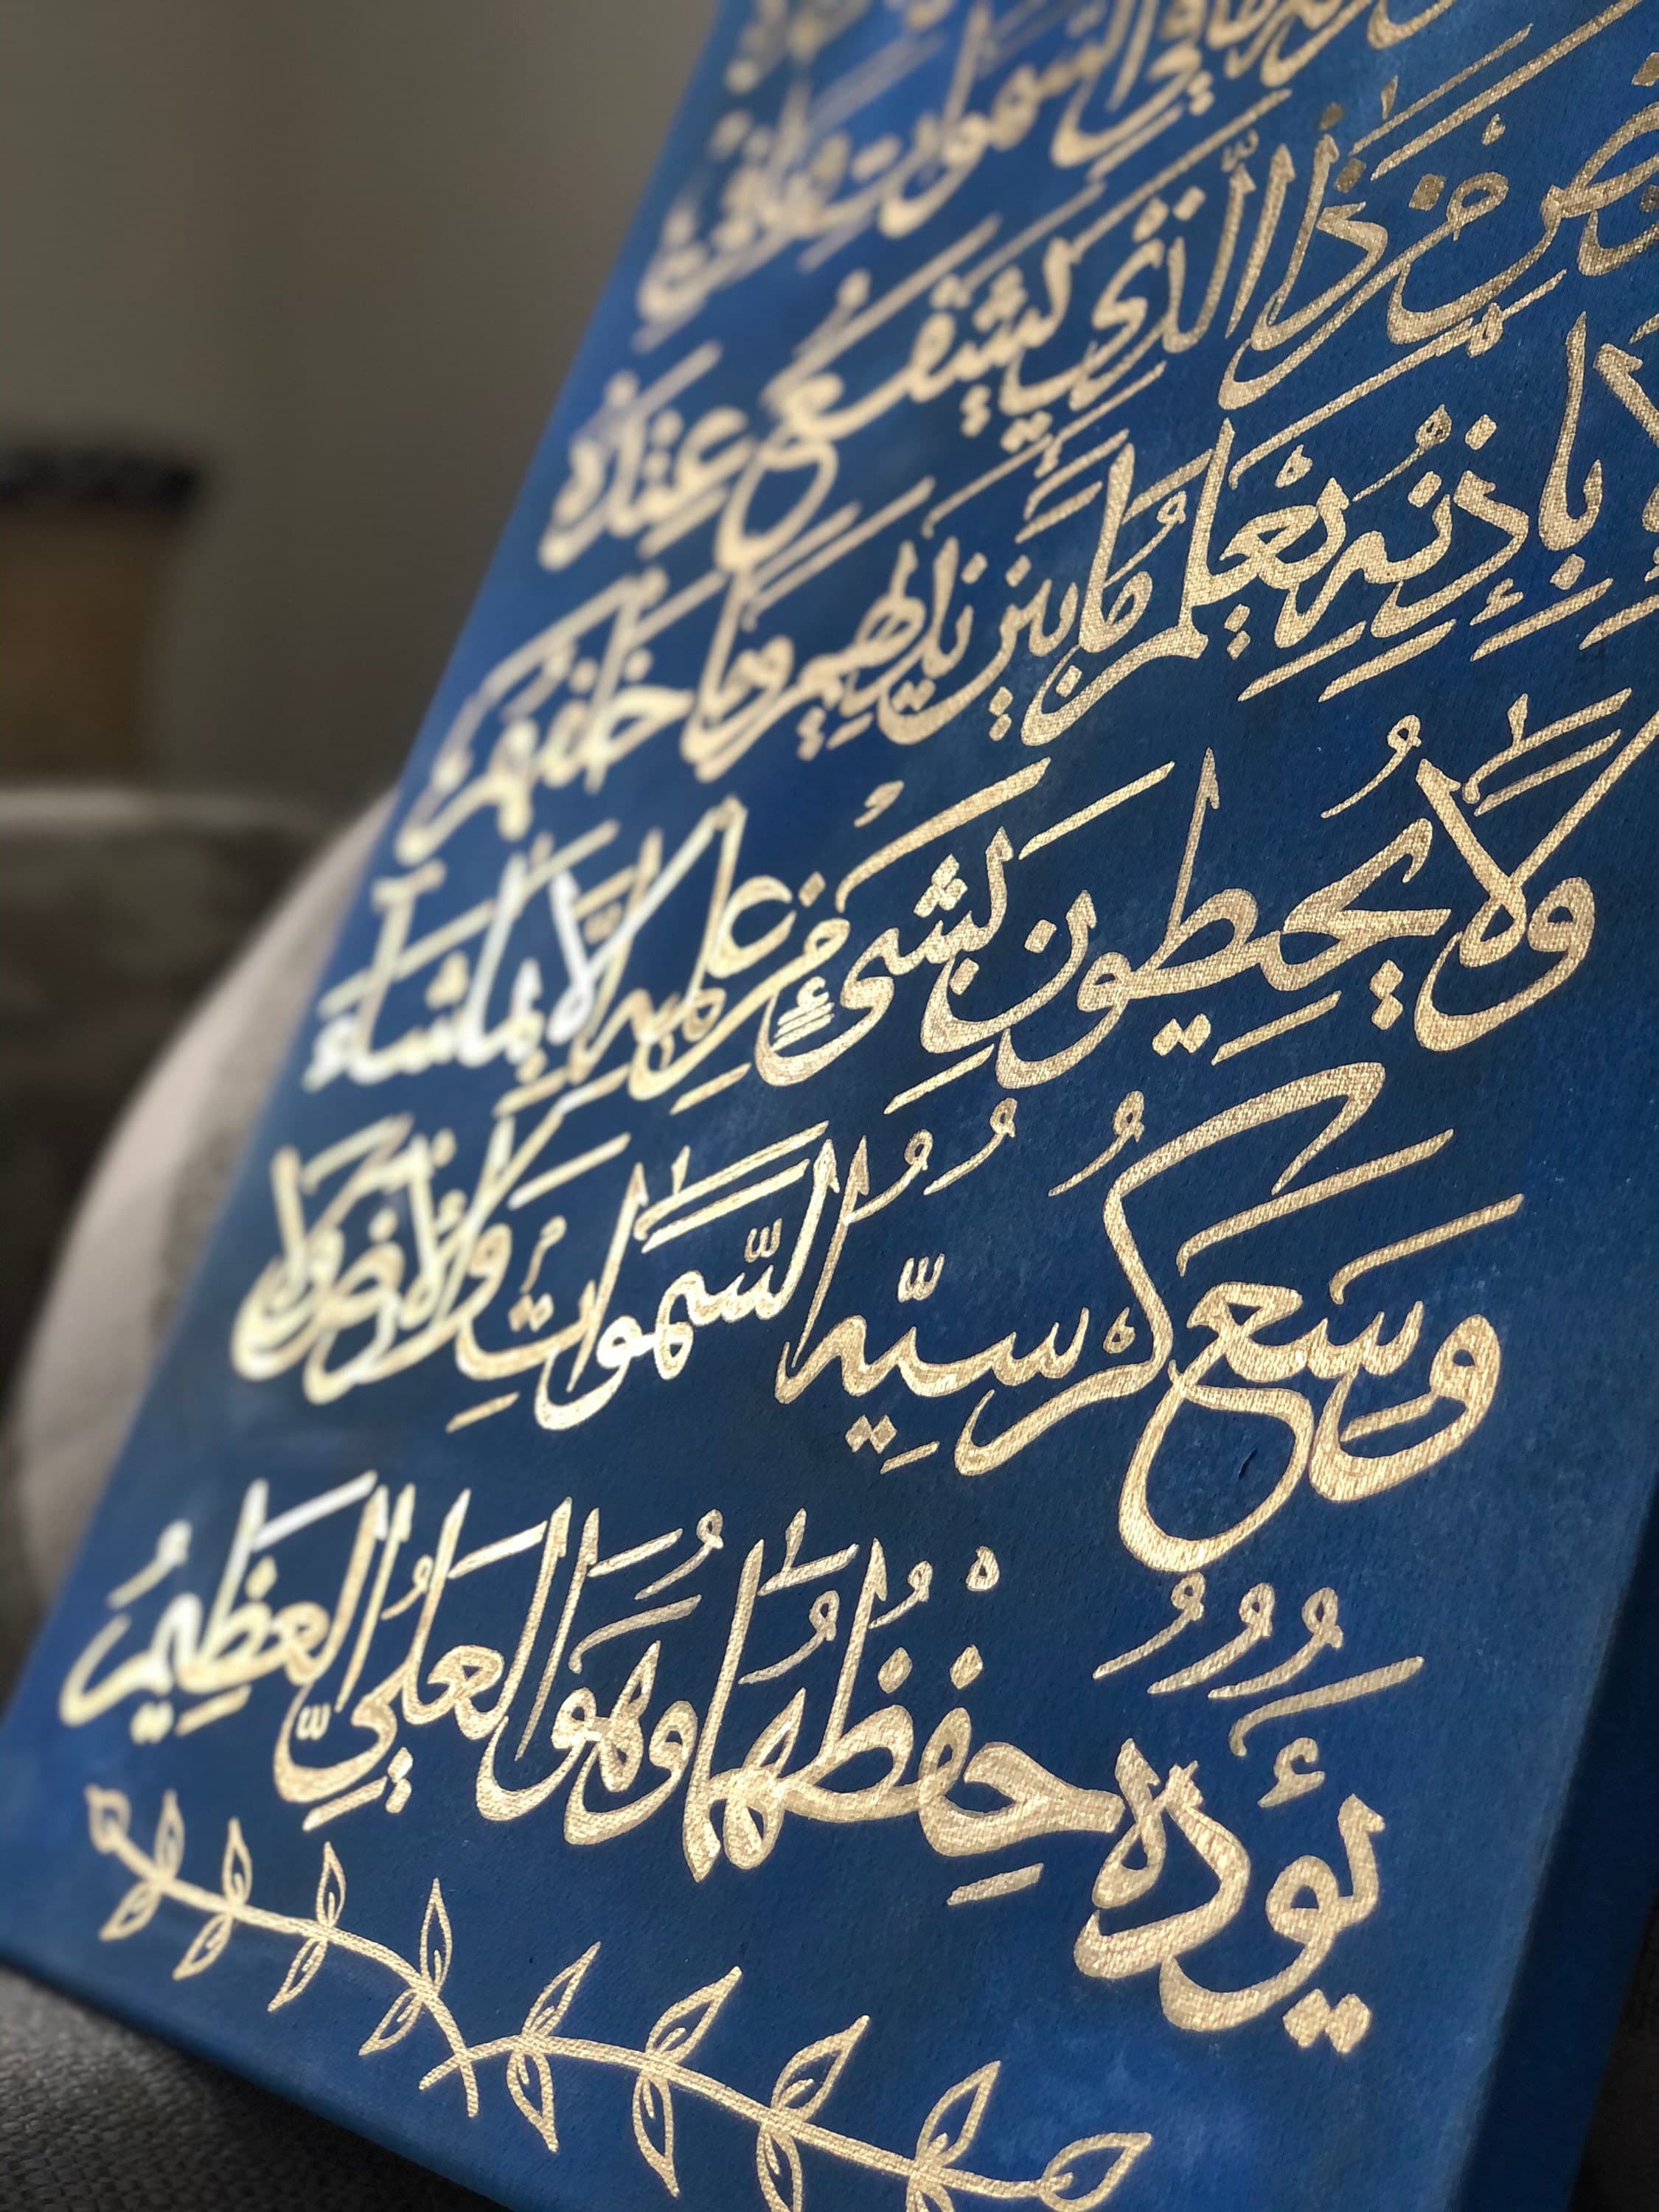 السموات وما في
ض من ذا الذي يشفع عنده
لا بإذنه يعلم ما بين أيديهم وما خلفهم
ولا يحيطون بشيء من علمه إلا بما شاء
وسع كرسيه السموات والأرض ولا
يؤده حفظهما وهو العلي العظيم